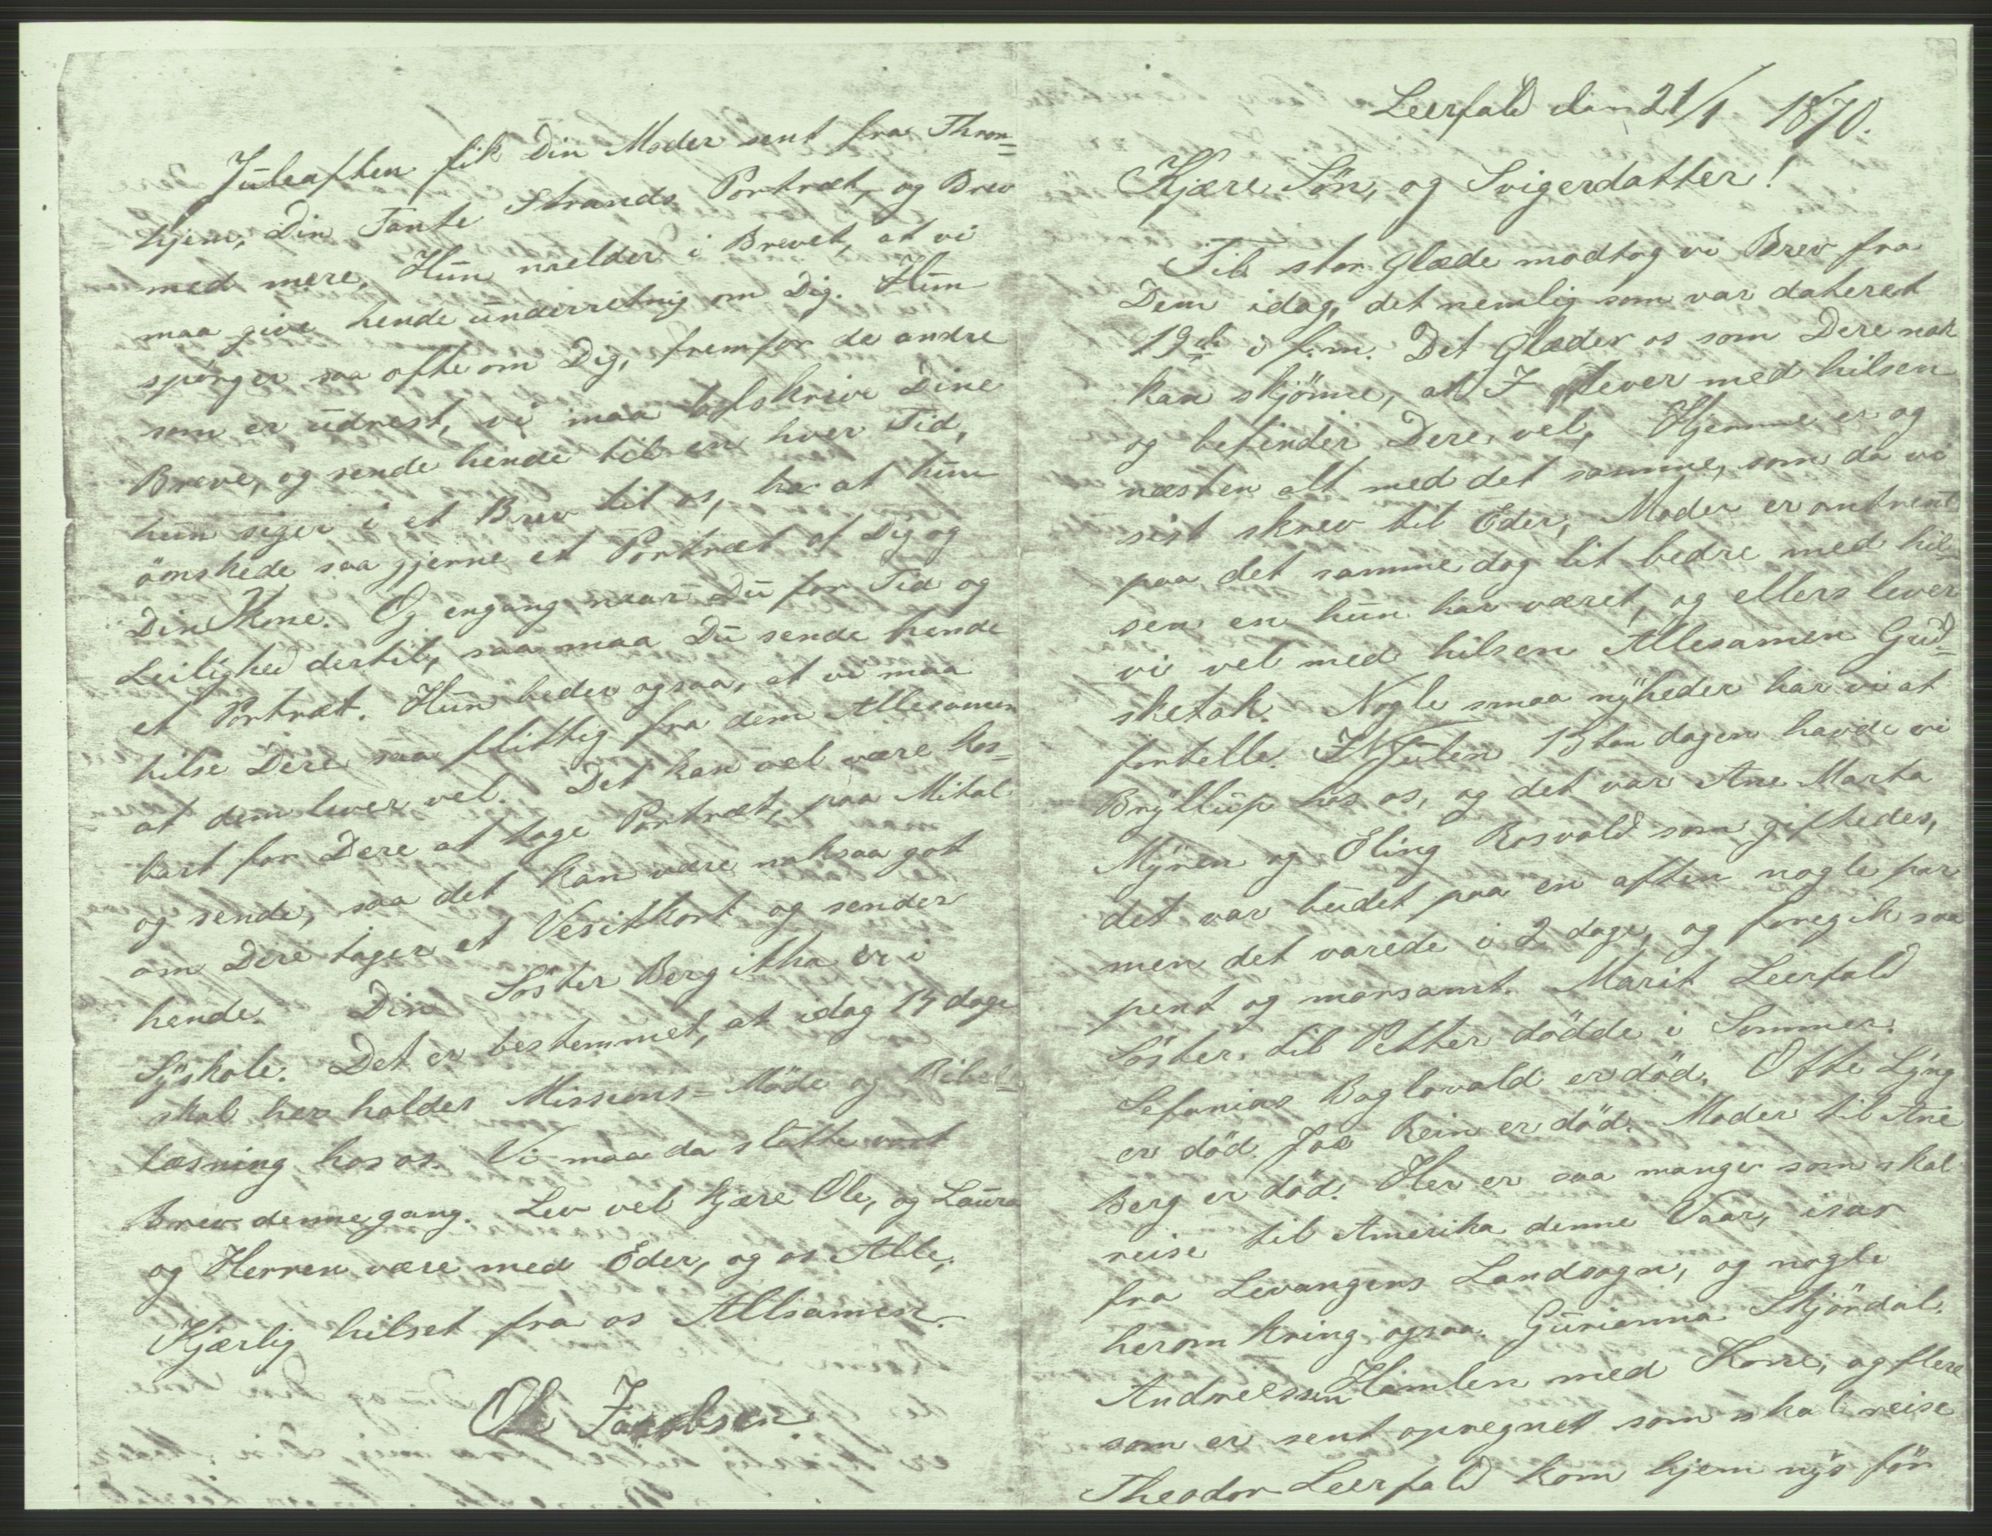 Leerfald den 21/1 1870.
Kjære Sön, og Svigerdatter!
Til stor Glæde modtog vi Brev fra
Dem idag, det nemlig som var dateret
19de i f.m. Det Glæder os som Dere nok
kan skjönne, at I lever med hilsen
og befinder Dere vel, Hjemme er og
næsten alt med det samme, som da vi
sist skrev til Eder, Moder er omtrent
paa det samme dog lit bedre med hil-
sen en hun har været, og ellers lever
vi vel med hilsen Allesamen Gud-
sketak. Nogle smaa nyheder har vi at
fortelle. I Julen 13ten dagen havde vi
Bryllup hos os, og det var Ane Marta
Myren og Eling Rosvald som giftedes,
det var budet paa en aften nogle par
men det varede i 2 dage, og foregik saa
pent og morsamt. Marit Leerfald
Söster til Petter dödde i Sommer.
Sefanias Baglovald er död. Otte Lyng
er död. Joe Rein er död. Moder til Ane
Berg er död. Her er saa mange som skal
reise til Amerika denne Vaar, især
fra Levangens Landsogn, og nogle
herom kring ogsaa. Gurianna Skjördal.
Andreessen Hamlen med Kone, og flere
som er sent opregnet som skal reise
Theodor Leerfald kom hjem nys för
Juleaften fik Din Moder sent fra Thron=
hjem, Din Tante Strands Portræt, og Brev
med mere, Hun melder i Brevet, at vi
maa give hende underretnig om Dig. Hun
spörger saa ofte om Dig, fremfor de andre
som er udrest, vi maa afskrive Dine
Breve, og sende hende til en hver Tid,
hun siger i et Brev til os, at hun
önskede saa gjerne et Portræt af Dig og
Din Kone. Og engang naar Du for Tid og
Leilighed dertil, saa maa Du sende hende
et Portræt. Hun beder ogsaa, at vi maa
hilse Dere saa flittig fra dem Allesamen
at dem lever vel. Det kan vel være kos-
bart for Dere at tage Portræt, paa Mital
og sende, saa det kan være noksaa got
om Dere tager et Vesitkort og sender
hende. Din Söster Bergitha er i
Syskole. Det er bestemmet, at idag 14 dage
skal her holdes Missions=Möde og Bibel-
læsning hos os. Vi maa da slutte vort
Brev denne gang. Lev vel kjære Ole, og Laura
og Herren være med Eder, og os Alle,
Kjærlig hilset fra os Allsamen.
Ole Jacobsen.